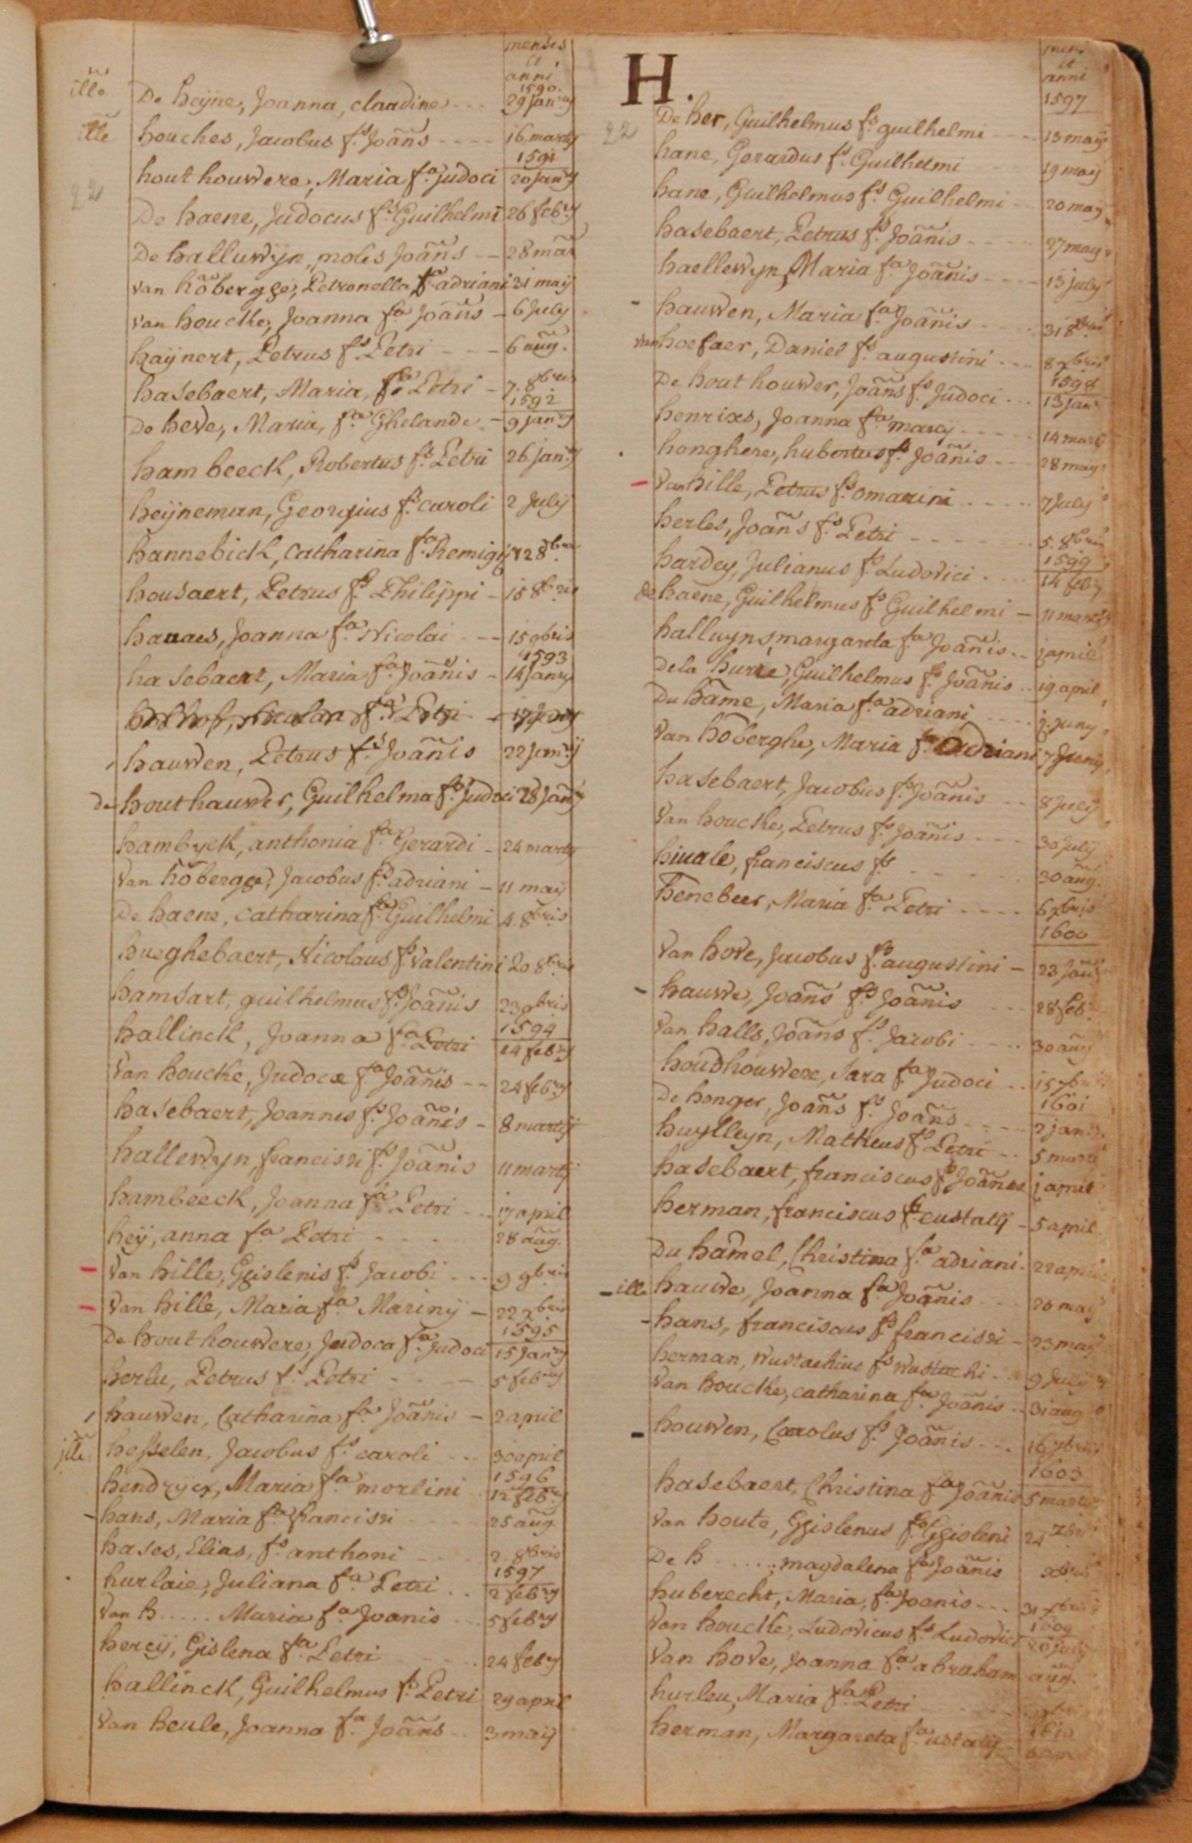 menses
et
anni
1590
illē De heyne, Joanna, claudine - - - 29 janry
ille houches, Jacobus fs. Joāns - - - - 16 marty
1591
hout houwere, Maria fa. Judoci 20 janry
22
De haene, Judocus fs. Guilhelmi 26 febry
De halluwÿn, nolis Joāns - - 28 mar
van hōbergge, Petronella fa adriani 21 maij
van houcke, Joanna fa Joāns - 6 July
haÿnert, Petrus fs Petri - - - 6 aūg.
hasebaert, Maria, fa Petri - 7. 8bris
1592
De heve, Maria, fa. Ghelande - 9 janry
hambeeck, Robertus fs. Petri 26 janry
heÿneman, Georgius fs. caroli 2 Julÿ
hannebick, catharina fa. Remigÿ 12 8bris
housaert, Petrus fs. Philippi - 18 8bris
hauaes, Joanna fa. Nicolai - - - 15 9bris
1593
hasebaert, Maria fa. Joānis - 14 Janry
hauwen, Petrus fs Joānis 22 janry
de houthauwer, Guilhelma fa. Judoci 28 Janry
hambyck, anthonia fa. Gerardi - 24 marty
van hōbergge, Jacobus fs adriani - 11 maij
De haene, catharina fa Guilhelmi 4. 8bris
hueghebaert, Nicolaus fs Valentini 20 8bris
hamsart, guilhelmus fs. Joānis 23 9bris
1594
hallinck, Joanna fa Petri 14 febry
van houcke, Judoca fa Joānis - - 24 febry
hasebaert, Joannes fs. Joānis - 8 martij
hallewyn francisci fs. Joānis 11 martij
hambeeck, Joanna fa Petri - - 17 april
heÿ, anna fa Petri - - - - 28 aūg.
van hille, Ggislenis fs Jacobi - - - 9 9bris
van hille, Maria fa Marinÿ - 22 xbris
1595
De hout houwere, Judoca fa. Judoci 15 janry
herlu, Petrus fs. Petri - - - 5 febry
hauwen, Catharina, fa Joānis - 2 april
jllē. hesselen, Jacobus fs caroli - - - 30 april
1596
hendrycx, Maria fa morlini 12 febry
hans, Maria fa francisci - - - - 25 aūg
hases, Elias, fs anthoni - - - 2. 8bris
1597
hurlaie, Juliana fa Petri - - 2 febry
van h . . . . . Maria fa Joanis - - - 5 febry
hercÿ, Gislena fa Petri - - - - 24 febry
hallinck, Guilhelmus fs Petri 29 april
van heule, Joanna fa Joāns - - 3 maij
H.
mens
et
anni
1597
22 De her, Guilhelmus fs guilhelmi - - - 13 maij
hane, Gerardus fs. Guilhelmi 19 maij
hane, Guilhelmus fs Guilhelmi - - 20 maij
hasebaert, Petrus fs Joānis - - - - 27 maij
haellewyn, Maria fa Joānis - - - - 13 july
hauwen, Maria fa Joānis - - - - 31 8bris
van hoefaer, Daniel fs. augustini - - - 8 xbris
1598
De hout houwer, Joāns fs. Judoci - - - 13 janr
henrixs, Joanna fa marcij - - - - - 14 marty
honghere, hubertus fs. Joānis - - - 28 maij
van hille, Petrus fs omarini - - - - - 7 July
herles, Joāns fs Petri - - - - - - 5. 8bris
1599
hardey, Julianus fs Ludovici - - - 14 feby
De haene, Guilhelmus fs Guilhelmi - 11 martij
halluyns margareta fa Joānis - - j april
dela hurie, Guilhelmus fs Joānis - - 19 april
Du hame, Maria fa adriani - - - - juny
van hōberghe, Maria fa Adriani 7 Junij
hasebaert, Jacobus fs Joānis - - - 8 July
van houcke, Petrus fs Joānis - - - 30 july
hiuale, franciscus fs - - - - - - 30 aūg.
henebeer, Maria fa Petri - - - - 6 xbris
1600
van hove, Jacobus fs. augustini - 23 Janry
hauwe, Joāns fs Joānis - - - - 28 feb.
van halls, Joāns fs. Jacobi - - - 30 aūg
houdhouwere, Sara fa Judoci - - 15 7bris
1601
De honger, Joāns fs Joāns - - - - 2 janry
huylleyn, Matheus fs Petri - - 5 marti
hasebaert, franciscus fs Joānes j april
herman, franciscus fs eustatÿ - 5 april
Du hamel, Christina fa adriani - 22 april
- ille hauwe, Joanna fa Joānis - - - 20 maij
hans, franciscus fs francisci - 23 maij
herman, wustachius fs wustachi - - 9 July
van houcke, catharina fa Joānis - - 31 aūg
houwen, Carolus fs Joānis - - - 16 7bris
1603
hasebaert, Christina fa Joānis 5 marti
van houte, Ggislenus fs Ggisleni 24 7bris
De h . . . . . , magdalena fa Joānis xbris
huberecht, Maria, fa Joanis - - - 31 xbris
van houcke, Ludovicus fs Ludovici 20 july
van hove, Joanna fa abraham aūg.
hurleu, Maria fa Petri
1610
herman, Margareta fa ustatÿ